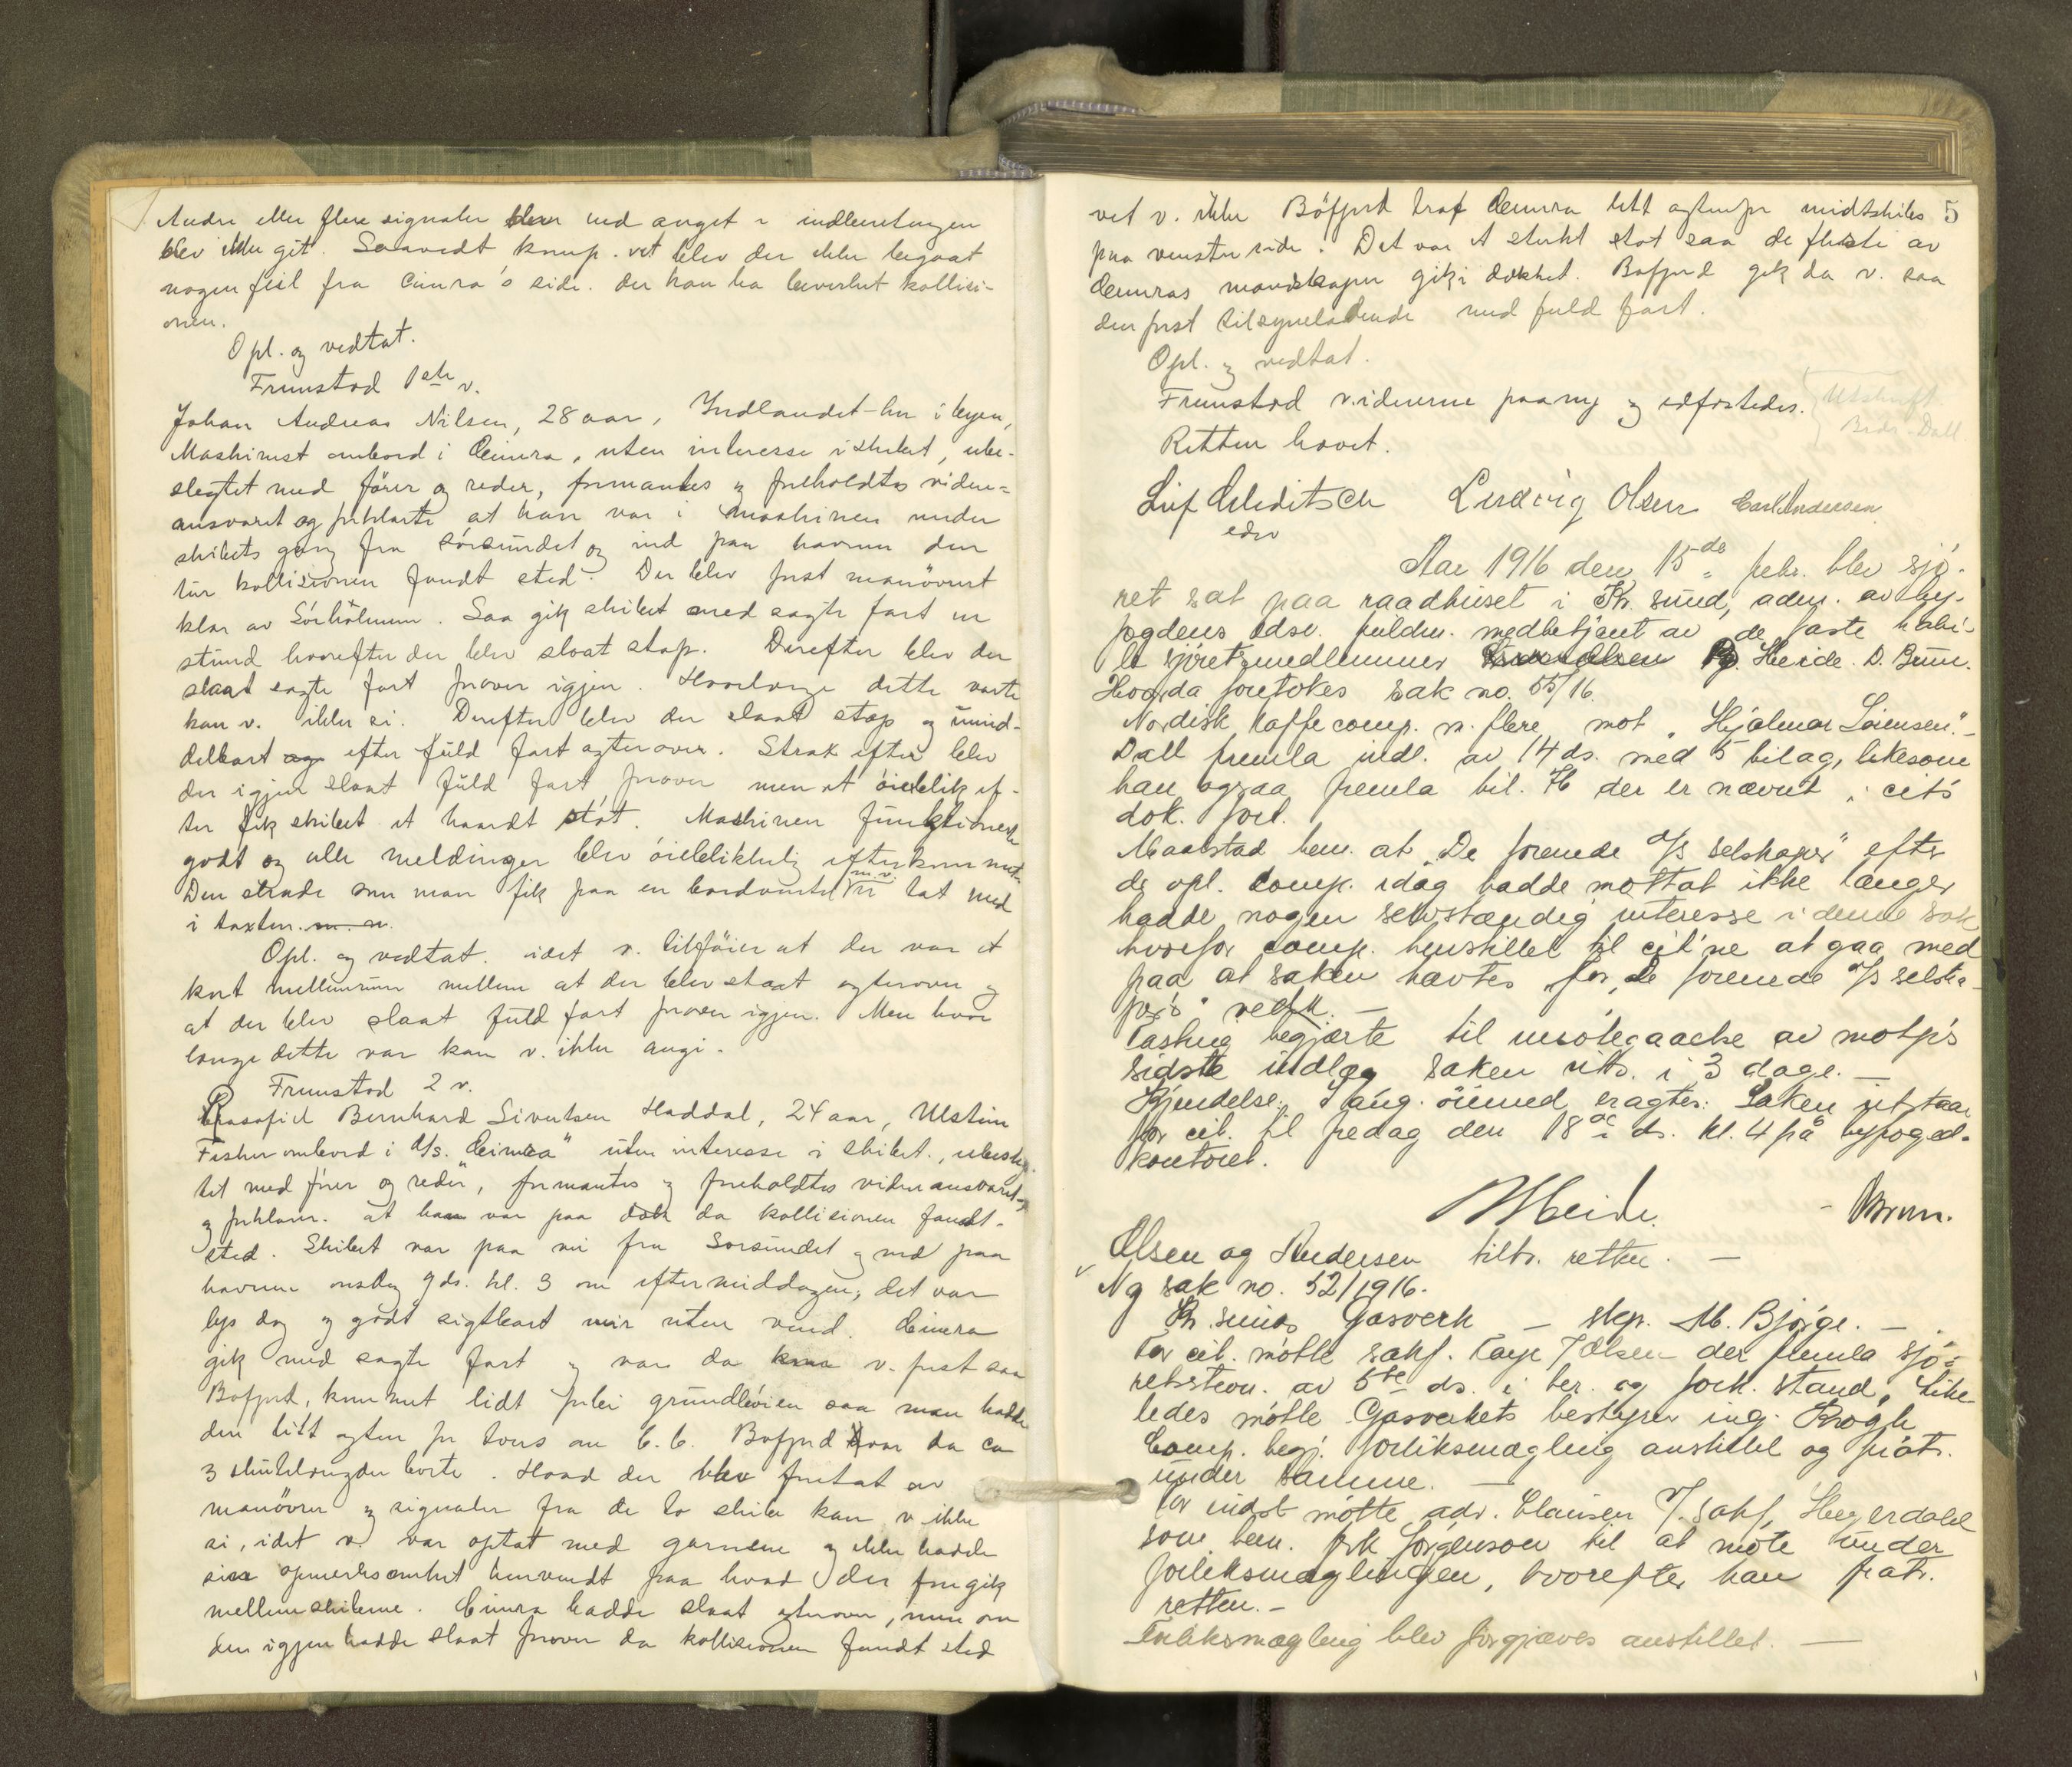 Andre eller flere signaler end anget i indberetningen
blev ikke git. Saavidt komp. vet blev der ikke begaat
nogen feil fra Cimra's side. der kan ha bevirket kollisi-
onen.
Opl. og vedtat.
Fremstod 1ste v.
Johan Andreas Nilsen, 28 aar, Indlandet her i byen,
Maskinist ombord i Cimra, uten interesse i skibet, ube-
slegtet med fører og reder, formantes og foreholdtes vidne-
ansvaret og forklarte at han var i maskinen under
skibets gang fra Sørsundet og ind paa havnen den
tur kollisionen fandt sted. Der blev først manøvrert
klar av Sørholmen. Saa gik skibet med sagte fart en
stund hvorefter der blev slaat stop. Derefter blev der
slaat sagte fart forover igjen. Hvorlænge dette varte
kan v. ikke si. Derefter blev der slaat stop og umid-
delbart efter fuld fart agterover. Strak efter blev
der igjen slaat fuld fart forover men et øieblik ef-
ter fik skibet et haardt støt. Maskinen funktionerte
godt og alle meldinger blev øieblikkelig efterkommet.
Den skade som man fik paa en bordventil m.v. er tat med
i taxten.
Opl. og vedtat. idet v. tilføier at der var et
kort mellemrum mellem at der blev slaat agterover og
at der blev slaat fuld fart forover igjen. Men hvor
længe dette var kan v. ikke angi.
Fremstod 2 v.
Bernhard Sivertsen Haddal, 24 aar, Ulstein
Fisker ombord i D/s. "Cimra" uten interesse i skibet, ubesleg-
tet med fører og reder, formantes og foreholdtes vidneansvaret
og forklarer at han var paa dæk da kollisionen fandt
sted. Skibet var paa vei fra Sørsundet og ind paa
havnen onsdag 9 ds. kl. 3 om eftermiddagen, det var
lys dag og godt sigtbart veir uten vind. Cimra
gik med sagte fart og var da v. først saa
Bøfjord, kommet lidt forbi grundbøien saa man hadde
den litt agten for tvers om b.b. Bøfjord var da ca
3 skibslængder borte. Hvad der blev foretat av
manøvrer og signaler fra de to skibe kan v. ikke
si, idet v. var optat med garnene og ikke hadde
sin opmerksomhet henvendt paa hvad der foregik
mellem skibene. Cimra hadde slaat agterover, men om
den igjen hadde slaat forover da kollisionen fandt sted
vet v. ikke Bøfjord traf Cimra litt agtenfor midtskibs 5
paa venstre side. Det var et sterkt støt saa de fleste av
Cimras mandskaper gik i dækket. Bøfjord gik da v. saa
den først tilsynelatende med fuld fart.
Opl. og vedtat.
Fremstod vidnerne paany og edfæstedes. Utskrift
Brdr. Dall
Retten hævet.
Leif Ludvig Olsen Carl Andersen
edsv
Aar 1916 den 15de febr. blev sjø-
ret sat paa raadhuset i Kr. sund, adm. av by-
fogdens edsv. fuldm. medbetjent av de faste
sjøretsmedlemmer Heide. D. Brun.
Hvorda foretokes sak no. 55/16.
Nordisk kaffecomp. m. flere mot "Hjalmar Sørensen".-
Dall fremla indl. av 14 ds. med 5 bilag, likesom
han ogsaa fremla bil. H der er nævnt i cit's
dok. forl.
Maalstad bem. at "De forende A/s selskaper" efter
de opl. comp. idag hadde mottat ikke længer
hadde nogen selvstændig interesse i denne sak
hvorfor comp. henstillet til cit'ne at gaa med
paa at saken hævtes for "De forende A/s selska-
per's" vedk. -
begjærte til imøtegaaelse av motp's
sidste indlæg saken uts. i 3 dage. -
Kjendelse: I ang. øiemed eragtes: Saken utstaar
for cit. til fredag den 18de ds. kl. 4 på byfoged-
kontoret.
Heide. - Brun.
Olsen og Andersen tiltr. retten. -
Ny sak no. 52/1916.
Kr.sunds Gasverk - skp. M. Bjørge. -
For cit. møtte sakf. Olsen der fremla sjø-
retsstevn. av 5te ds. i ber. og fork. stand, like-
ledes møtte Gasverkets bestyrer ing. Krogh.
Comp. begj. forliksmægling anstillet og fratr.
under samme. -
For indst møtte adv. Clausen v/ sakf. Heyerdahl
som bem. frk Jørgensen til at møte under
forliksmæglingen, hvorefter han fratr.
retten. -
Forliksmægling blev forgjæves anstillet. -